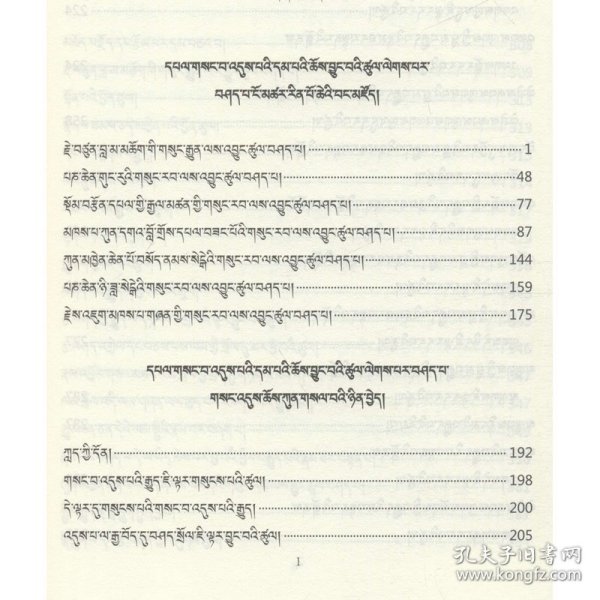 དཔལ་གསང་བ་འདུས་པའི་དམ་པའི་ཆོས་བྱུང་བའི་ཚུལ་ལེགས་པར་
བཤད་པ་ངོ་མཚར་རིན་པོ་ཆེའི་བང་མཛོད།
རྗེ་བཙུན་བླ་མ་མཆོག་གི་གསུང་རྒྱུན་ལས་འབྱུང་ཚུལ་བཤད་པ། 1
པཎ་ཆེན་གུང་རུའི་གསུང་རབ་ལས་འབྱུང་ཚུལ་བཤད་པ། 48
སྡོམ་བརྩོན་དཔལ་གྱི་རྒྱལ་མཚན་གྱི་གསུང་རབ་ལས་འབྱུང་ཚུལ་བཤད་པ། 77
མཁས་པ་ཀུན་དགའ་བློ་གྲོས་དཔལ་བཟང་པོའི་གསུང་རབ་ལས་འབྱུང་ཚུལ་བཤད་པ། 87
ཀུན་མཁྱེན་ཆེན་པོ་བསོད་ནམས་སེངྒེའི་གསུང་རབ་ལས་འབྱུང་ཚུལ་བཤད་པ། 144
པཎ་ཆེན་ཉི་ཟླ་སེངྒེའི་གསུང་རབ་ལས་འབྱུང་ཚུལ་བཤད་པ། 159
རྗེས་འཇུག་མཁས་པ་གཞན་གྱི་གསུང་རབ་ལས་འབྱུང་ཚུལ་བཤད་པ། 175
དཔལ་གསང་བ་འདུས་པའི་དམ་པའི་ཆོས་བྱུང་བའི་ཚུལ་ལེགས་པར་བཤད་པ་
གསང་འདུས་ཆོས་ཀུན་གསལ་བའི་ཉིན་བྱེད།
ཀླད་ཀྱི་དོན། 192
གསང་བ་འདུས་པའི་རྒྱུད་ཇི་ལྟར་གསུངས་པའི་ཚུལ། 198
དེ་ལྟར་དུ་གསུངས་པའི་གསང་བ་འདུས་པའི་རྒྱུད། 200
འདུས་པ་ལ་རྒྱ་བོད་དུ་བཤད་སྲོལ་ཇི་ལྟར་བྱུང་བའི་ཚུལ། 205
1
孔夫子旧书网
www.kongfz.com